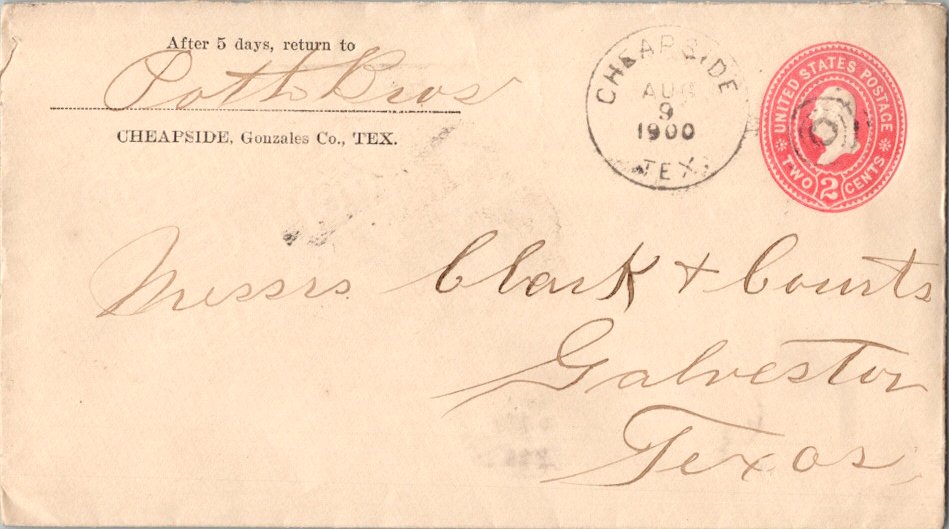 After 5 days, return to
Poth Bros
CHEAPSIDE, Gonzales Co., TEX.
CHEAPSIDE
AUG
9
1900
TEX.
UNITED STATES POSTAGE
TWO 2 CENTS
Messrs Clark + Courts
Galveston
Texas